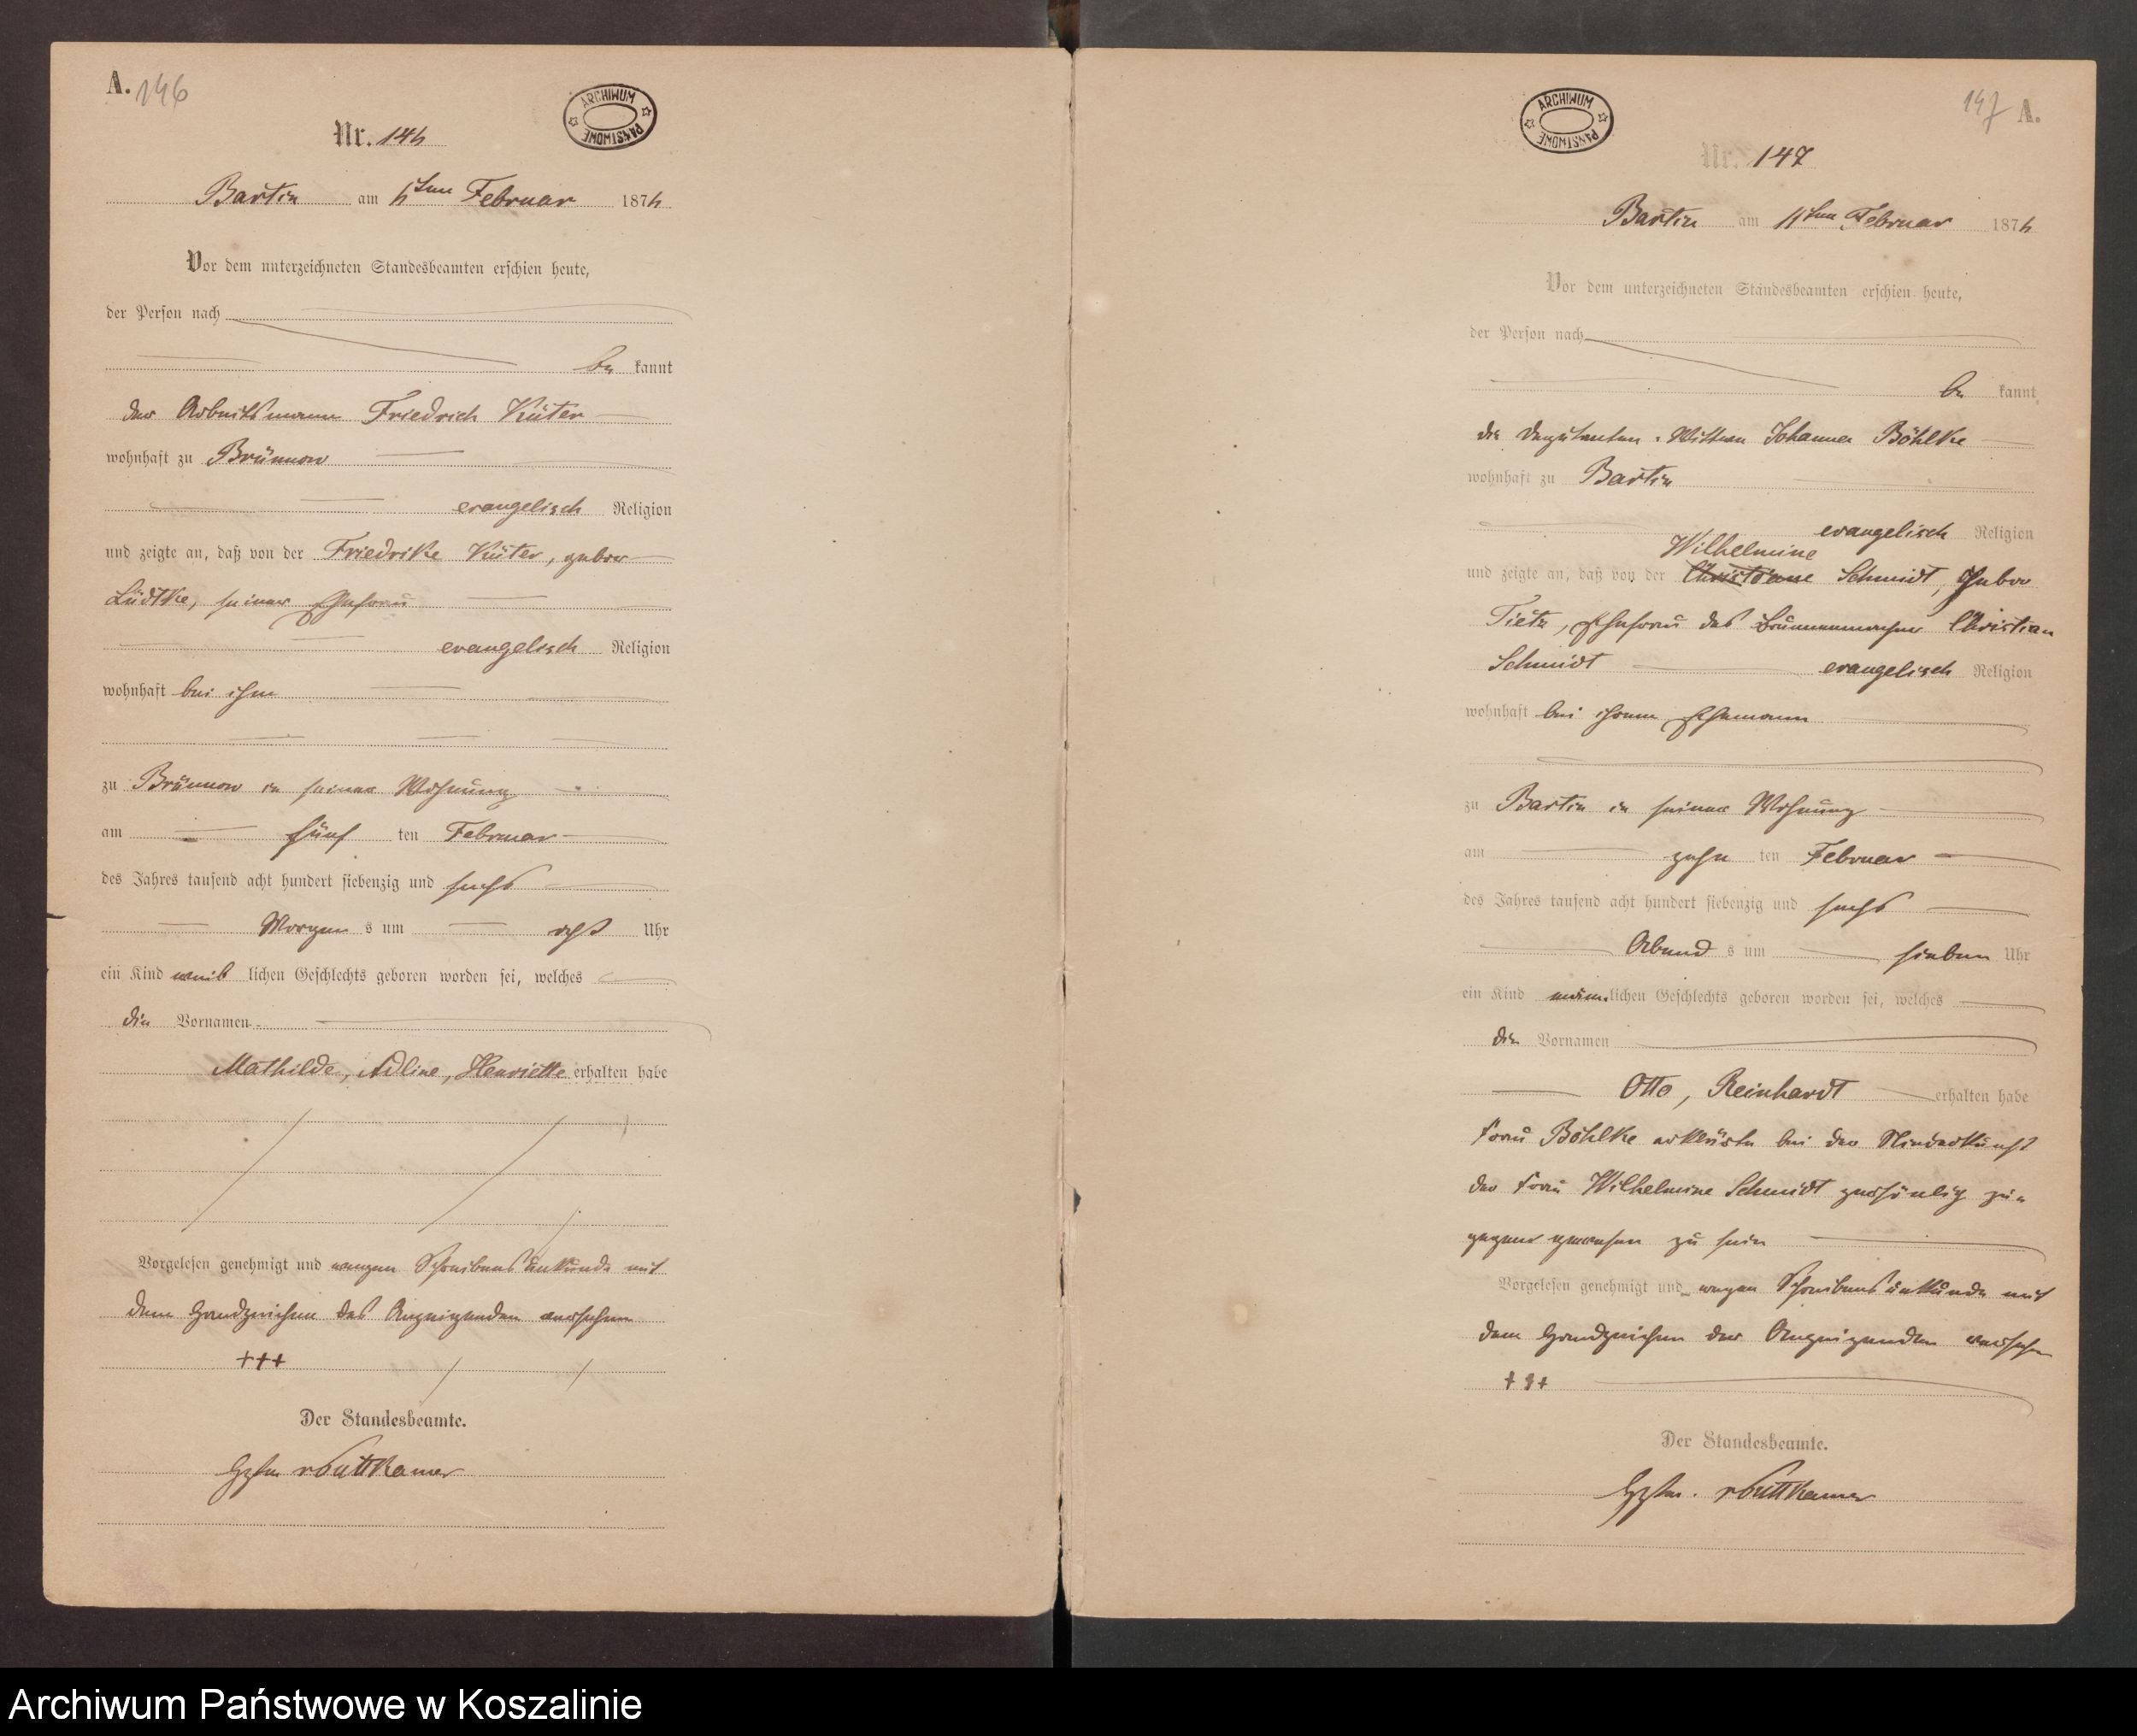 A. 146
ARCHIWUM PAŃSTWOWE
Nr. 146
Bartin am 6ten Februar 1876
Vor dem unterzeichneten Standesbeamten erschien heute,
der Person nach
be kannt
der Arbeitsmann Friedrich Küter
wohnhaft zu Brünnow
evangelisch Religion
und zeigte an, daß von der Friedrike Küter, gebor
Lüdtke, seiner Ehefrau
evangelisch Religion
wohnhaft bei ihm
zu Brünnow in seiner Wohnung
am fünf ten Februar
des Jahres tausend acht hundert siebenzig und sechs
Morgen s um acht Uhr
ein Kind weib lichen Geschlechts geboren worden sei, welches
die Vornamen
Mathilde, Adline, Henriette erhalten habe
Vorgelesen genehmigt und wegen Schreibensunkunde mit
dem Handzeichen des Anzeigenden versehen
+++
Der Standesbeamte.
vPuttkamer
147 A.
ARCHIWUM PAŃSTWOWE
Nr. 147
Bartin am 11ten Februar 1876
Vor dem unterzeichneten Standesbeamten erschien heute,
der Person nach
be kannt
die Deputanten-Wittwe Johanna Böhlke
wohnhaft zu Bartin
evangelisch Religion
Wilhelmine
und zeigte an, daß von der Christiane Schmidt, gebor
Tietz, Ehefrau des Brunnenmacher Christian
Schmidt evangelisch Religion
wohnhaft bei ihrem Ehemann
zu Bartin in seiner Wohnung
am zehn ten Februar
des Jahres tausend acht hundert siebenzig und sechs
Abend s um sieben Uhr
ein Kind männ lichen Geschlechts geboren worden sei, welches
die Vornamen
Otto, Reinhardt erhalten habe
Frau Böhlke erklärte bei der Niederkunft
der Frau Wilhelmine Schmidt persönlich zu-
gegen gewesen zu sein
Vorgelesen genehmigt und wegen Schreibensunkunde mit
dem Handzeichen der Anzeigenden versehen
+++
Der Standesbeamte.
vPuttkamer
Archiwum Państwowe w Koszalinie